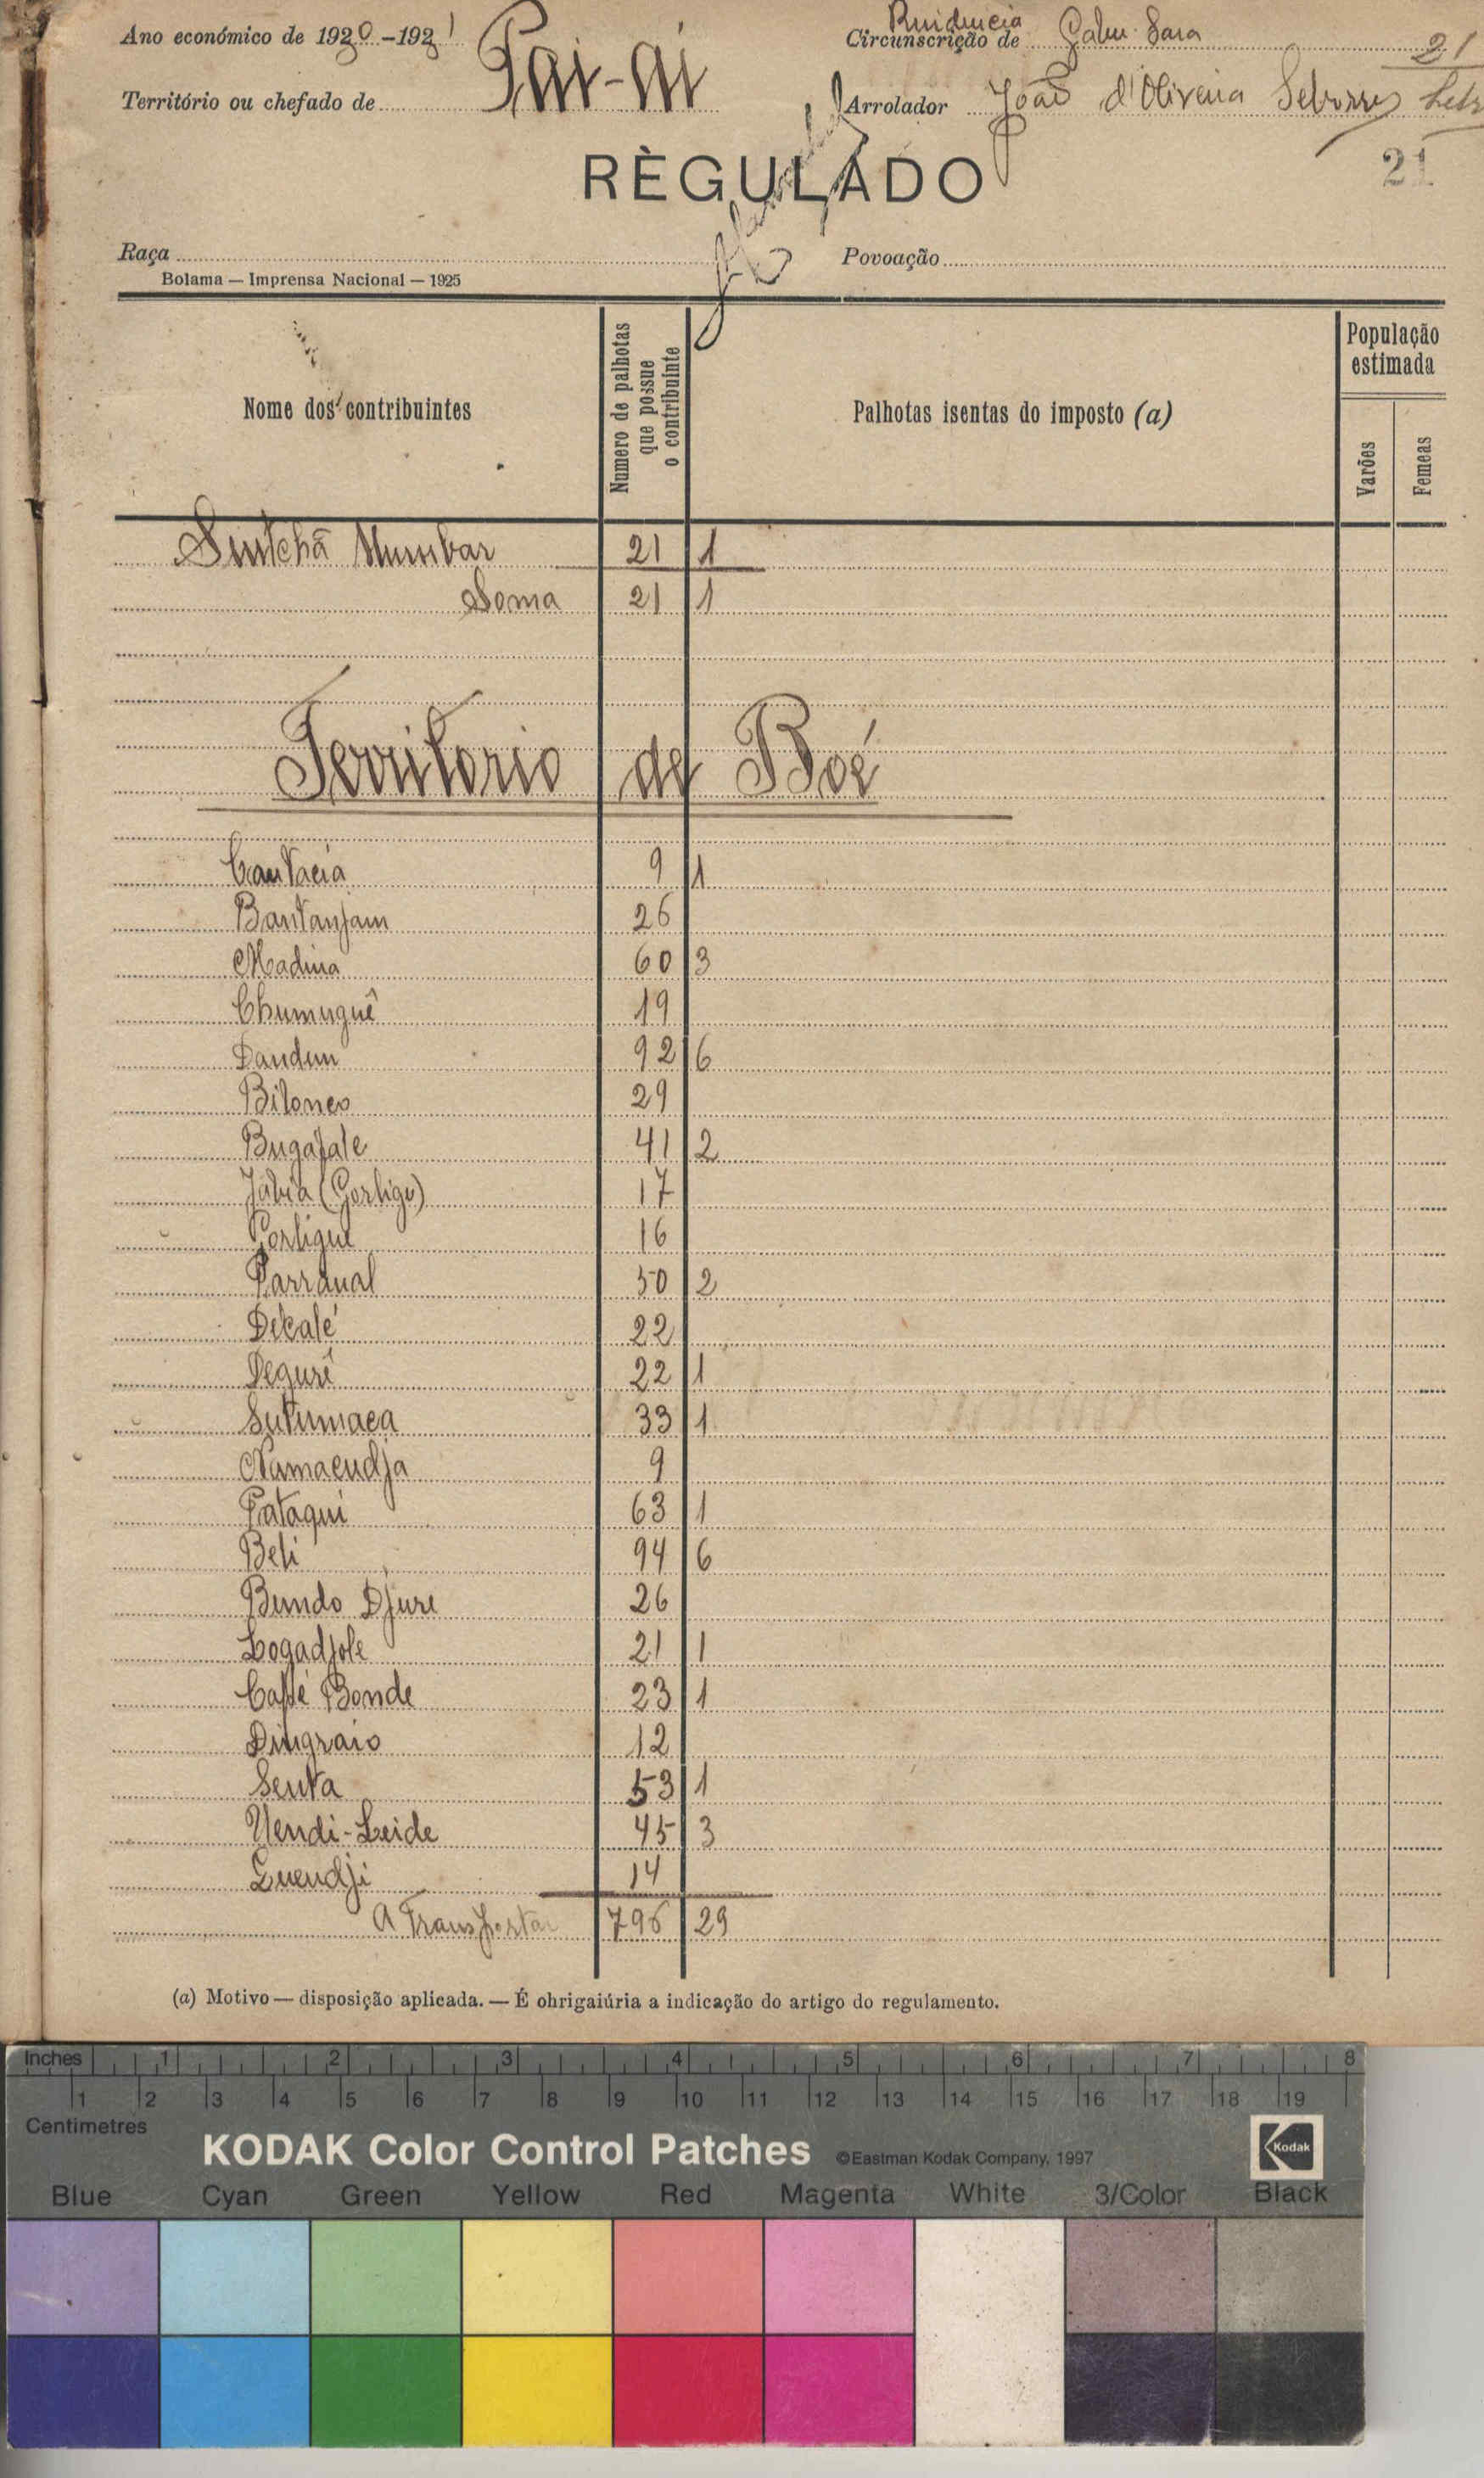 Ano económico de 1930-1931 Residencia Gabu-Sara 21
Circunscrição de
Território ou chefado de Pai-ai Arrolador João d'Oliveira
RÈGULADO 21
Raça Povoação
Bolama — Imprensa Nacional — 1925
Nome dos contribuintes Numero de palhotas que possue o contribuinte Palhotas isentas do imposto (a) População estimada
Varões Femeas
Sintchã Mumbar 21 1
Soma 21 1
Territorio de Boé
Cantacia 9 1
Bantanjam 26
Madina 60 3
Chumuguê 19
Dandun 92 6
Bilonco 29
Bugafale 41 2
Jábia (Gorligu) 17
Gorligue 16
Parranal 50 2
Dékalé 22
Deguré 22 1
Sutumaca 33 1
Namacudja 9
Pataqui 63 1
Beli 94 6
Bundo Djure 26
Logadjole 21 1
Caffé Bonde 23 1
Dingraio 12
Senta 53 1
Uendi-Leide 45 3
Guendji 14
A Transportar 796 29
(a) Motivo — disposição aplicada. — É ohrigaiúria a indicação do artigo do regulamento.
Inches 1 2 3 4 5 6 7 8
1 2 3 4 5 6 7 8 9 10 11 12 13 14 15 16 17 18 19
Centimetres
KODAK Color Control Patches ©Eastman Kodak Company, 1997 Kodak
Blue Cyan Green Yellow Red Magenta White 3/Color Black